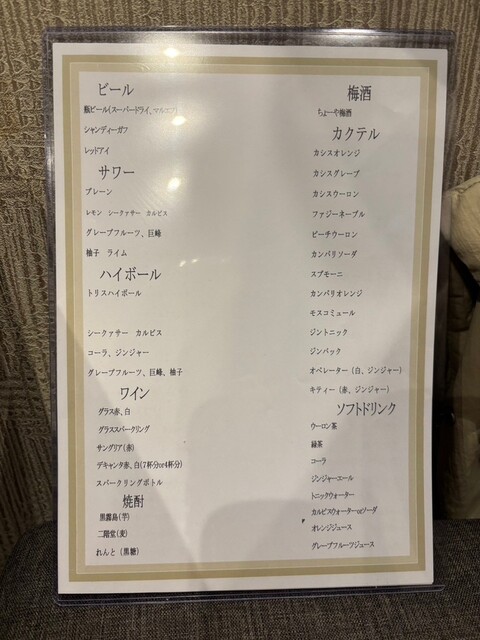 ビール
瓶ビール(スーパードライ、マルエフ)
シャンディーガフ
レッドアイ
サワー
プレーン
レモン　シークァサー　カルピス
グレープフルーツ、巨峰
柚子　ライム
ハイボール
トリスハイボール
シークァサー　カルピス
コーラ、ジンジャー
グレープフルーツ、巨峰、柚子
ワイン
グラス赤、白
グラススパークリング
サングリア(赤)
デキャンタ赤、白(7杯分or4杯分)
スパークリングボトル
焼酎
黒霧島(芋)
二階堂(麦)
れんと（黒糖）
梅酒
ちょーや梅酒
カクテル
カシスオレンジ
カシスグレープ
カシスウーロン
ファジーネーブル
ピーチウーロン
カンパリソーダ
スプモーニ
カンパリオレンジ
モスコミュール
ジントニック
ジンバック
オペレーター（白、ジンジャー）
キティー（赤、ジンジャー）
ソフトドリンク
ウーロン茶
緑茶
コーラ
ジンジャーエール
トニックウォーター
カルピスウォーターorソーダ
オレンジジュース
グレープフルーツジュース